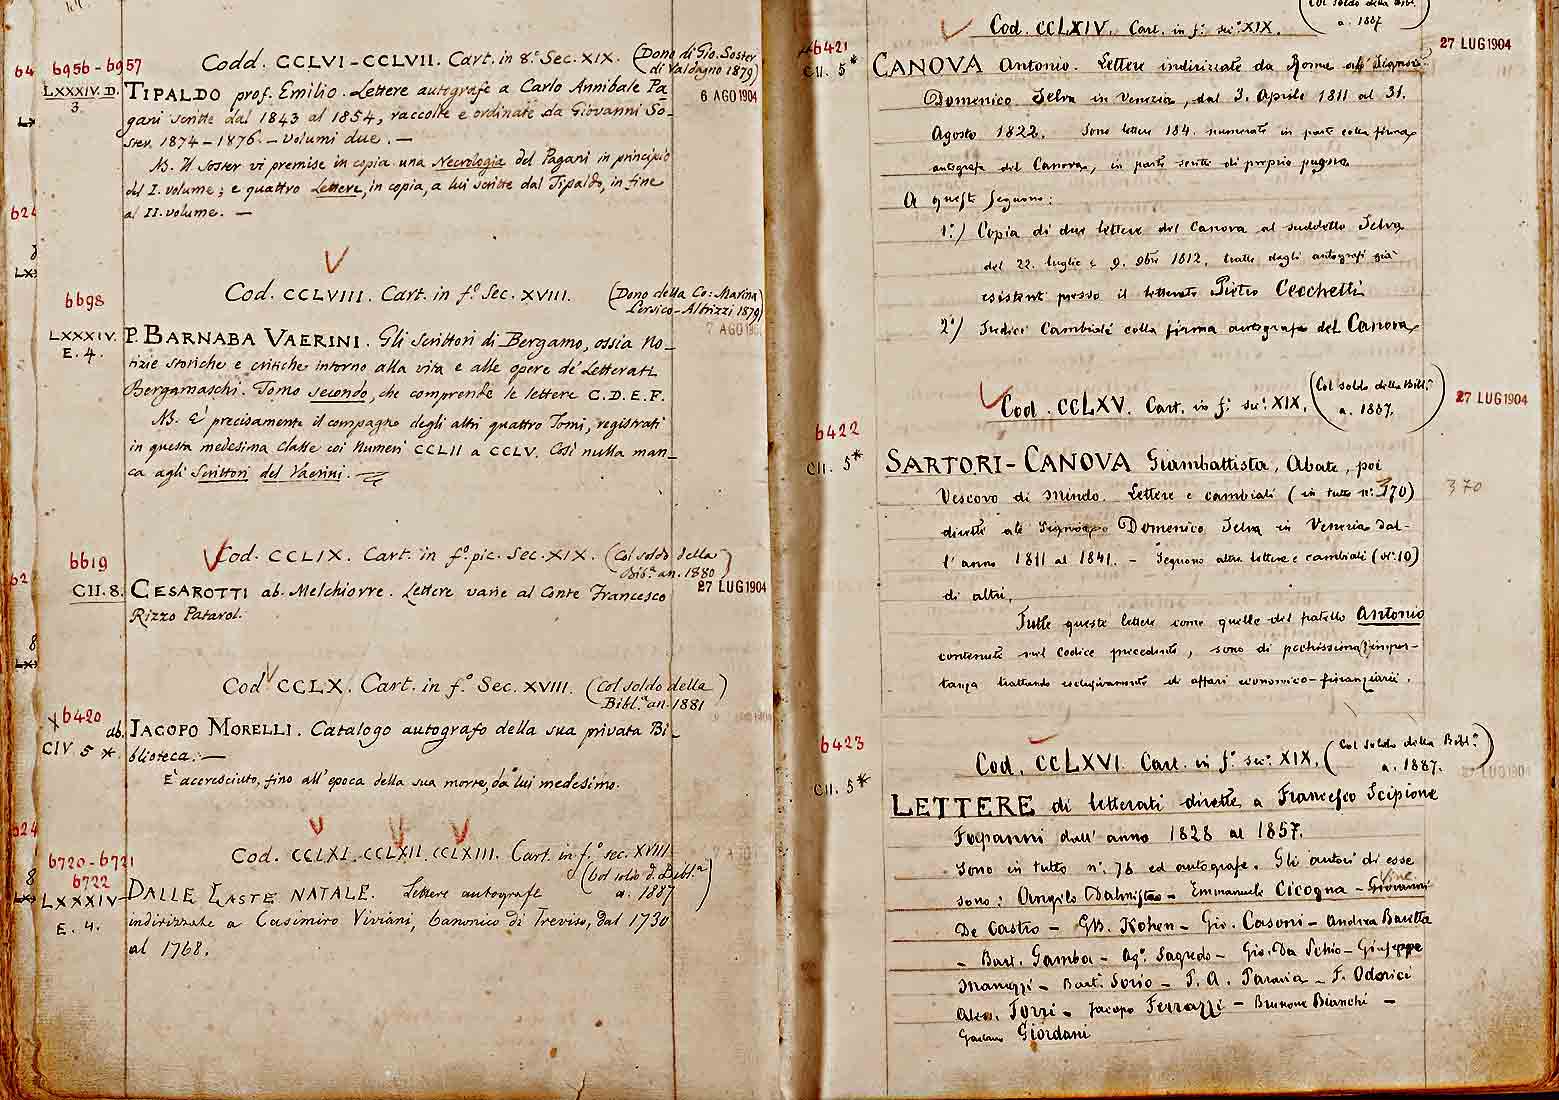 Codd. CCLVI-CCLVII. Cart. in 8º Sec. XIX. (Dono di Gio. Soster
di Valdagno 1879)
6956-6957
LXXXIV. D.
3.
6 AGO 1904
TIPALDO prof. Emilio. Lettere autografe a Carlo Annibale Pa-
gani scritte dal 1843 al 1854, raccolte e ordinate da Giovanni So-
ster, 1874-1876. - Volumi due. -
NB. Il Soster vi premise in copia una Necrologia del Pagani in principio
del I. volume; e quattro Lettere, in copia, a lui scritte dal Tipaldo, in fine
al II. volume. -
6698
Cod. CCLVIII. Cart. in fº. Sec. XVIII. (Dono della Co: Marina
Persico-Albrizzi 1879)
LXXXIV.
E. 4.
7 AGO
P. BARNABA VAERINI. Gli Scrittori di Bergamo, ossia no-
tizie storiche e critiche intorno alla vita e alle opere de' Letterati
Bergamaschi. Tomo secondo, che comprende le lettere C. D. E. F.
NB. E' precisamente il compagno degli altri quattro Tomi, registrati
in questa medesima Classe coi numeri CCLII a CCLV. Così nulla man-
ca agli Scrittori del Vaerini.
6619
Cod. CCLIX. Cart. in fº. pic. Sec. XIX. (Col soldo della
Bib.ª an. 1880)
CII. 8.
27 LUG 1904
CESAROTTI ab. Melchiorre. Lettere varie al Conte Francesco
Rizzo Patarol.
Cod CCLX. Cart. in fº Sec. XVIII. (Col soldo della
Bibl.ª an. 1881)
6420
CIV 5 *
ab. JACOPO MORELLI. Catalogo autografo della sua privata Bi-
blioteca. -
E' accresciuto, fino all'epoca della sua morte, da lui medesimo.
6720-6721
6722
LXXXIV
E. 4.
Cod. CCLXI. CCLXII. CCLXIII. Cart. in f.º sec. XVIII
(Col soldo d. Bibl.ª
a. 1887)
DALLE LASTE NATALE. Lettere autografe
indirizzate a Casimiro Viviani, Canonico di Treviso, dal 1730
al 1768.
Cod. CCLXIV. Cart. in fº. sec. XIX. (Col soldo della Bibl.
a. 1887
6421
CII. 5*
27 LUG 1904
CANOVA Antonio. Lettere indirizzate da Roma al Signor
Domenico Selva in Venezia, dal 3. Aprile 1811 al 31.
Agosto 1822. Sono lettere 184. numerate in parte colla firma
autografa del Canova, in parte scritte di proprio pugno.
A queste seguono:
1º) Copia di due lettere del Canova al suddetto Selva
del 22. luglio e 9. 9bre 1812. tratte dagli autografi già
esistenti presso il letterato Pietro Cecchetti
2º) Tredici Cambiali colla firma autografa del Canova
Cod. CCLXV. Cart. in fº. sec. XIX. (Col soldo della Bibl.ª
a. 1887.)
6422
CII. 5*
27 LUG 1904
SARTORI-CANOVA Giambattista, Abate, poi
Vescovo di Mindo. Lettere e cambiali (in tutto nº. 370)
370
dirette al Signor Domenico Selva in Venezia dal-
l'anno 1811 al 1841. - Seguono altre lettere e cambiali (nº. 10)
di altri.
Tutte queste lettere come quelle del fratello Antonio
contenute nel codice precedente, sono di pochissima impor-
tanza trattando esclusivamente di affari economico-finanziari.
6423
CII. 5*
Cod. CCLXVI. Cart. in fº. sec. XIX. (Col soldo della Bibl.ª
a. 1887.)
27 LUG 1904
LETTERE di letterati dirette a Francesco Scipione
Fapanni dall'anno 1828 al 1857.
Sono in tutto nº. 78 ed autografe. Gli autori di esse
sono: Angelo Dalmistro - Emmanuele Cicogna - Giovanni
De Castro - GB. Kohen - Gio. Casoni - Andrea Baretta
- Bart. Gamba - Agº. Sagredo - Gio. Da Schio - Giuseppe
Manuzzi - Bart. Sorio - P. A. Paravia - F. Odorici
Aless. Torri - Jacopo Ferrazzi - Brunone Bianchi -
Gaetano Giordani